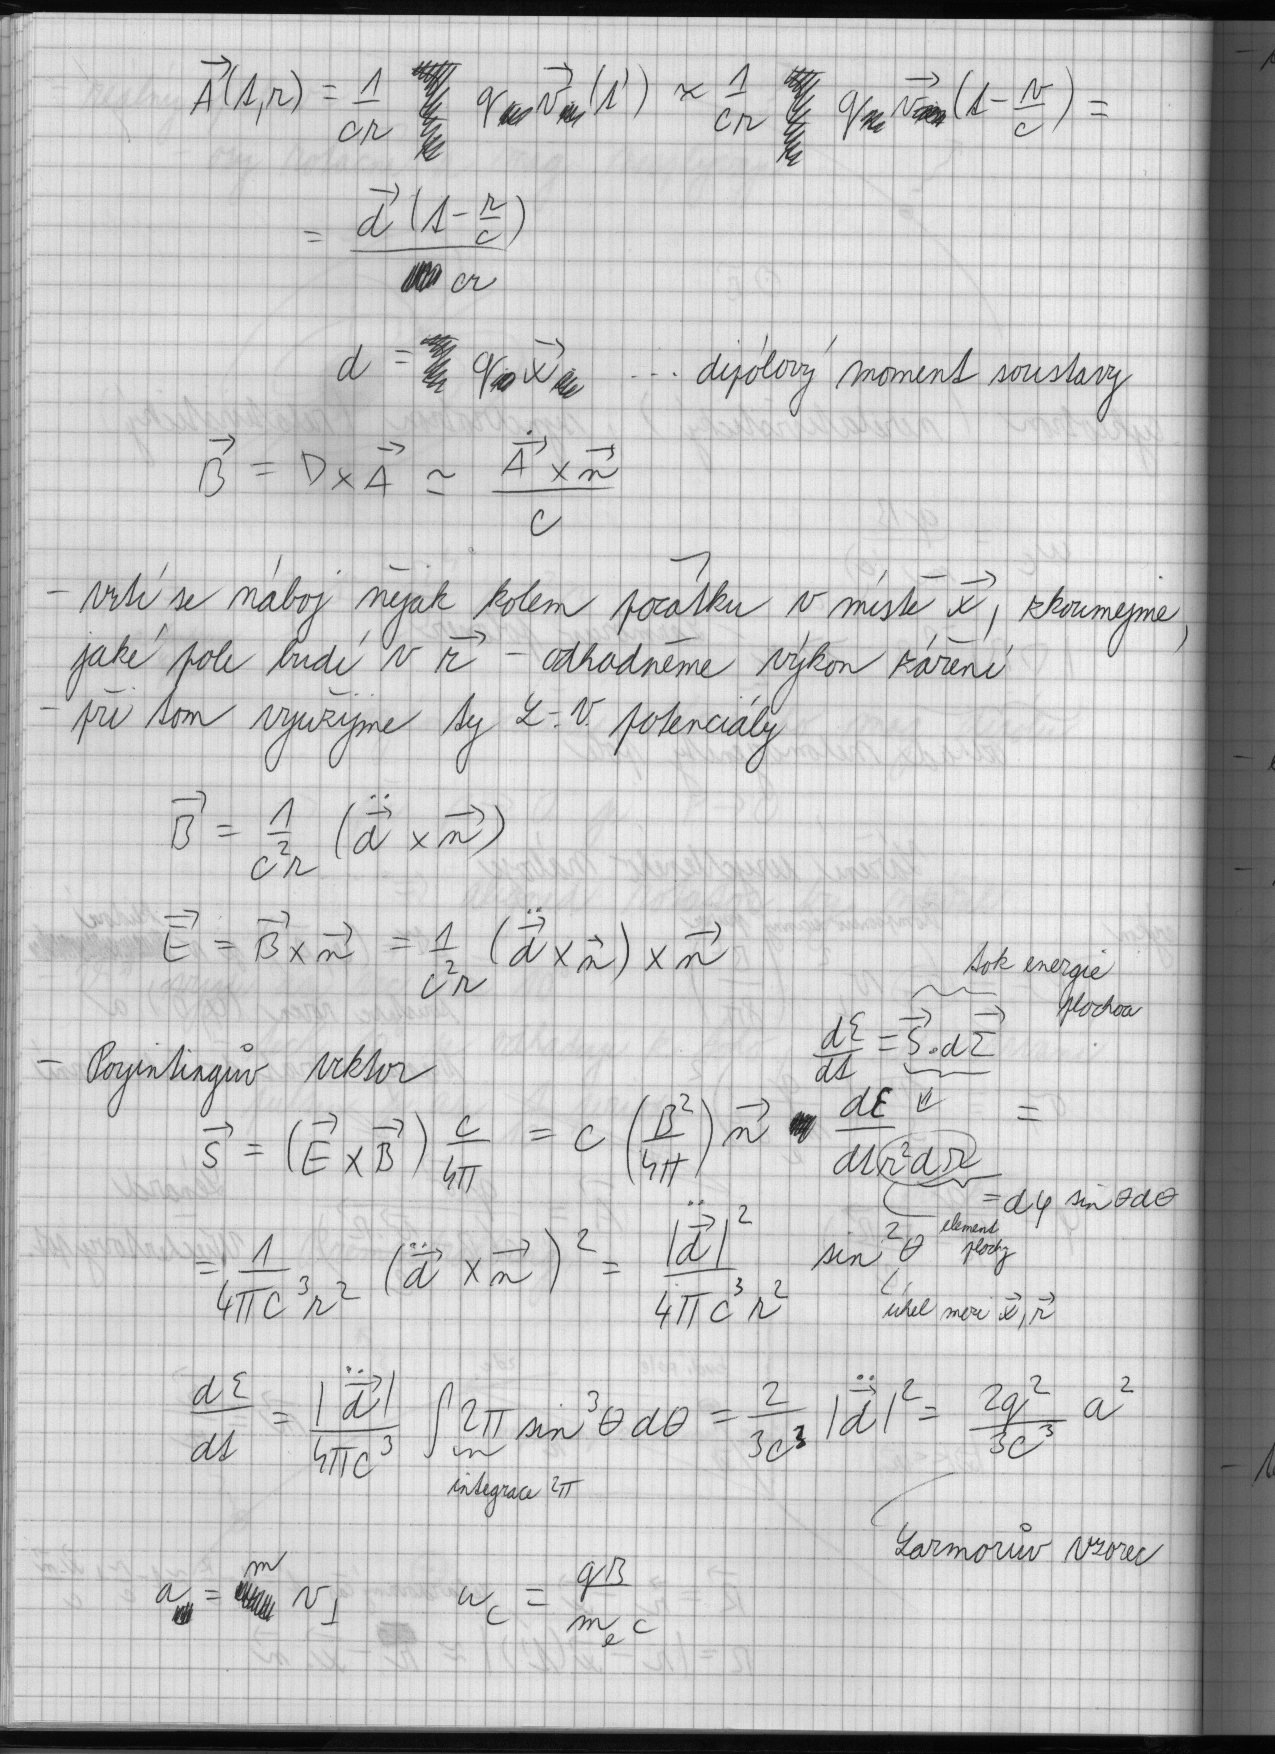 A⃗(t,r) = 1/cr q v⃗(t') ≈ 1/cr q v⃗(t - r/c) =
= d⃗(t - r/c) / cr
d = q x⃗ ... dipólový moment soustavy
B⃗ = ∇×A⃗ ≃ (A⃗̇ × n⃗)/c
- vrtí se náboj nějak kolem počátku v místě x⃗, zkoumejme,
jaké pole budí v r⃗ - odhadněme výkon záření
- při tom využijme ty L.-V. potenciály
B⃗ = 1/c²r (d⃗̈ × n⃗)
E⃗ = B⃗×n⃗ = 1/c²r (d⃗̈×n⃗)×n⃗
tok energie
plochou
dℰ/dt = S⃗·dΣ⃗
- Poyintingův vektor
S⃗ = (E⃗×B⃗) c/4π = c (B²/4π) n⃗ dℰ/dt r²dΩ =
= dφ sinθdθ
element plochy
= 1/4πc³r² (d⃗̈ × n⃗)² = |d⃗̈|²/4πc³r² sin²θ
úhel mezi x⃗, r⃗
dℰ/dt = |d⃗̈|/4πc³ ∫ 2π sin³θdθ = 2/3c³ |d⃗̈|² = 2q²/3c³ a²
integrace 2π
Larmorův vzorec
a = v⊥ ω_c = qB/m_e c